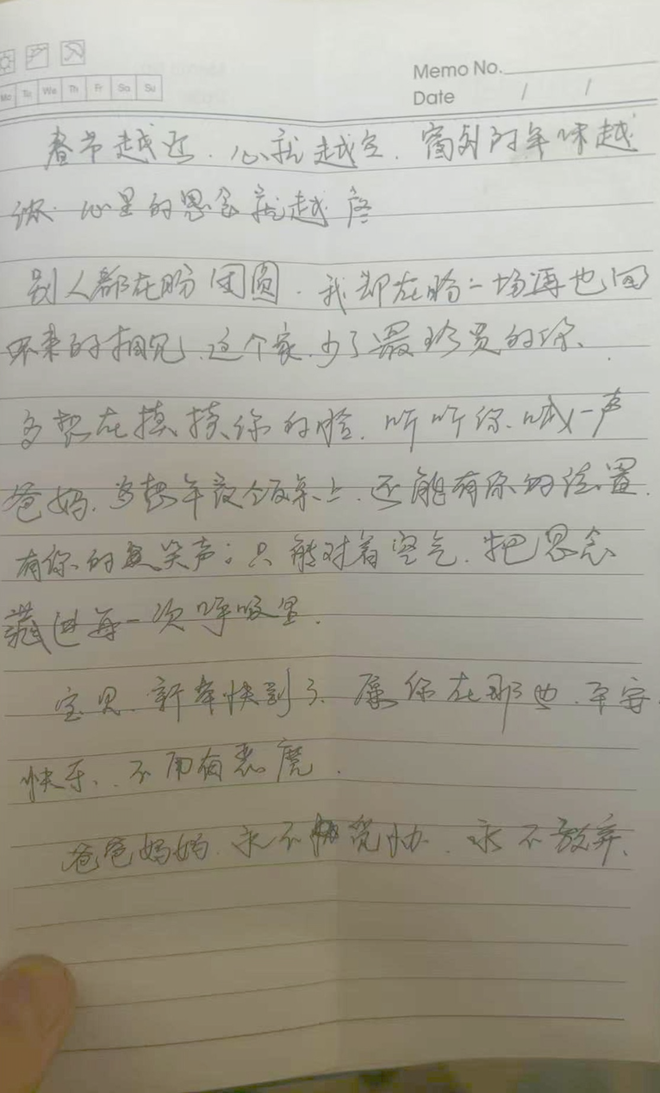 Memo No.
Mo Tu We Th Fr Sa Su
Date / /
春节越近.心就越空.窗外的年味越
浓.心里的思念就越疼
别人都在盼团圆.我却在盼一场再也回
不来的相见.这个家.少了最珍贵的你.
多想在摸摸你的脸.听听你.喊一声
爸妈.多想年夜饭桌上.还能有你的位置.
有你的笑声;只能对着空气.把思念
藏进每一次呼吸里.
宝贝.新年快到了.愿你在那边.平安
快乐..不用有恶魔.
爸爸妈妈.永不妥协.永不放弃.